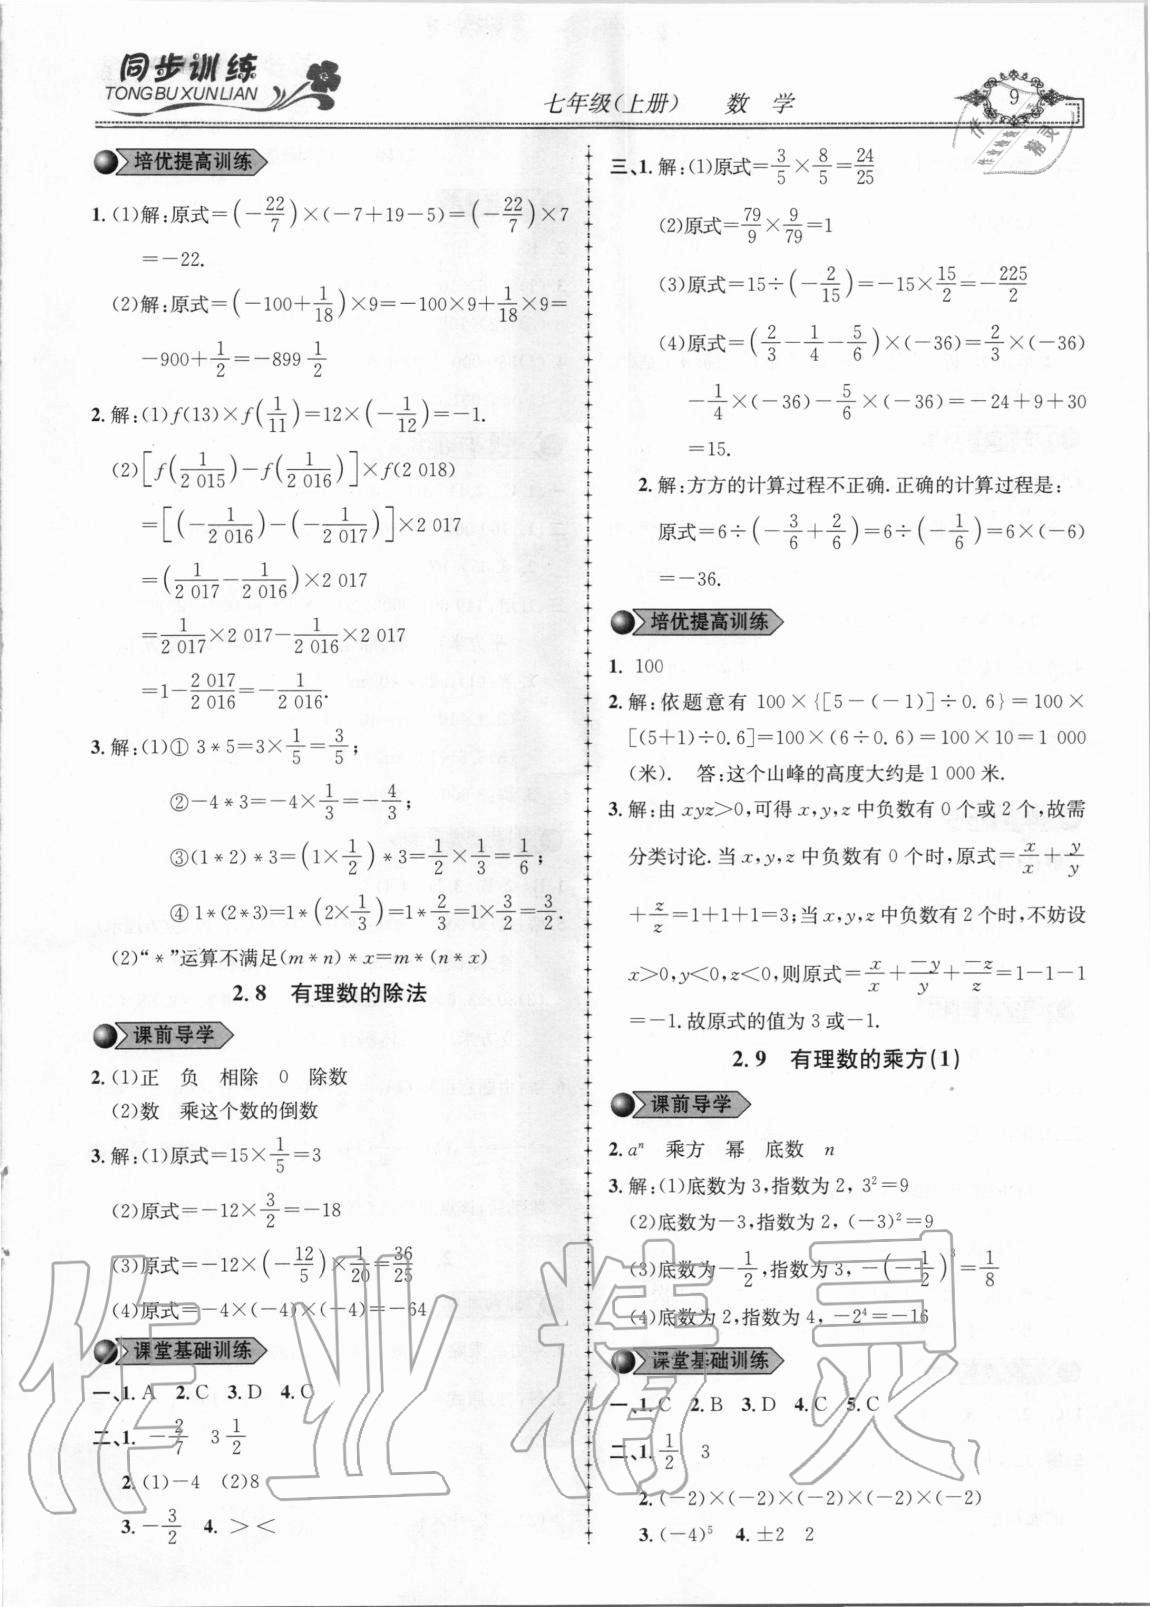 同步训练
TONGBUXUNLIAN
七年级(上册) 数 学
9
培优提高训练
1. (1)解:原式=(-22/7)×(-7+19-5)=(-22/7)×7
=-22.
(2)解:原式=(-100+1/18)×9=-100×9+1/18×9=
-900+1/2=-899 1/2
2. 解:(1)f(13)×f(1/11)=12×(-1/12)=-1.
(2)[f(1/2 015)-f(1/2 016)]×f(2 018)
=[(-1/2 016)-(-1/2 017)]×2 017
=(1/2 017-1/2 016)×2 017
=1/2 017×2 017-1/2 016×2 017
=1-2 017/2 016=-1/2 016.
3. 解:(1)① 3*5=3×1/5=3/5;
②-4*3=-4×1/3=-4/3;
③(1*2)*3=(1×1/2)*3=1/2×1/3=1/6;
④ 1*(2*3)=1*(2×1/3)=1*2/3=1×3/2=3/2.
(2)“*”运算不满足(m*n)*x=m*(n*x)
2.8 有理数的除法
课前导学
2. (1)正 负 相除 0 除数
(2)数 乘这个数的倒数
3. 解:(1)原式=15×1/5=3
(2)原式=-12×3/2=-18
(3)原式=-12×(-12/5)×1/20=36/25
(4)原式=-4×(-4)×(-4)=-64
课堂基础训练
一、1. A 2. C 3. D 4. C
二、1. -2/7 3 1/2
2. (1)-4 (2)8
3. -3/2 4. > <
三、1. 解:(1)原式=3/5×8/5=24/25
(2)原式=79/9×9/79=1
(3)原式=15÷(-2/15)=-15×15/2=-225/2
(4)原式=(2/3-1/4-5/6)×(-36)=2/3×(-36)
-1/4×(-36)-5/6×(-36)=-24+9+30
=15.
2. 解:方方的计算过程不正确.正确的计算过程是:
原式=6÷(-3/6+2/6)=6÷(-1/6)=6×(-6)
=-36.
培优提高训练
1. 100
2. 解:依题意有 100×{[5-(-1)]÷0.6}=100×
[(5+1)÷0.6]=100×(6÷0.6)=100×10=1 000
(米). 答:这个山峰的高度大约是 1 000 米.
3. 解:由 xyz>0,可得 x,y,z 中负数有 0 个或 2 个,故需
分类讨论. 当 x,y,z 中负数有 0 个时,原式=x/x+y/y
+z/z=1+1+1=3;当 x,y,z 中负数有 2 个时,不妨设
x>0,y<0,z<0,则原式=x/x+-y/y+-z/z=1-1-1
=-1. 故原式的值为 3 或-1.
2.9 有理数的乘方(1)
课前导学
2. aⁿ 乘方 幂 底数 n
3. 解:(1)底数为 3,指数为 2, 3²=9
(2)底数为-3,指数为 2, (-3)²=9
(3)底数为-1/2,指数为 3, -(-1/2)³=1/8
(4)底数为 2,指数为 4, -2⁴=-16
课堂基础训练
一、1. C 2. B 3. D 4. C 5. C
二、1. 1/2 3
2. (-2)×(-2)×(-2)×(-2)×(-2)
3. (-4)⁵ 4. ±2 2
作业精灵